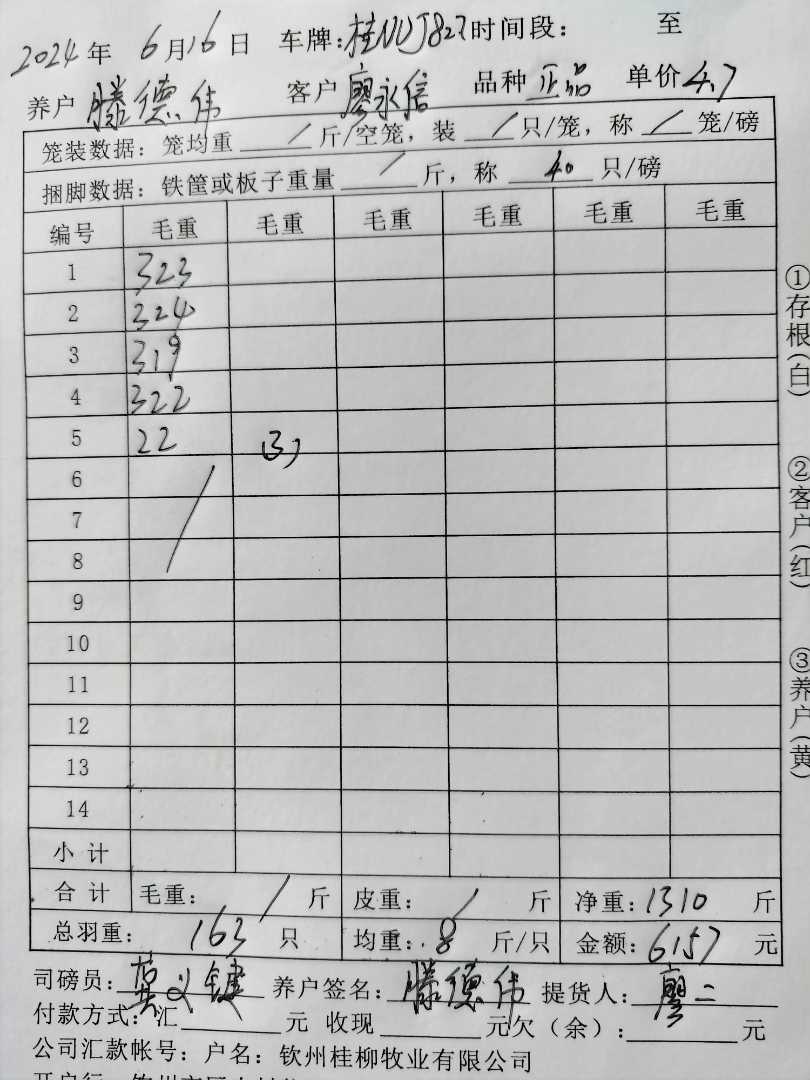 2024年 6月16日 车牌:桂NUJ827时间段: 至
养户 滕德伟 客户 廖永信 品种 正品 单价 4.7
笼装数据: 笼均重 / 斤/空笼, 装 / 只/笼, 称 / 笼/磅
捆脚数据: 铁筐或板子重量 / 斤, 称 40 只/磅
编号 毛重 毛重 毛重 毛重 毛重 毛重
1 323
2 324
3 319
4 322
5 22 (3)
6
7
8
9
10
11
12
13
14
小计
合计 毛重: / 斤 皮重: / 斤 净重: 1310 斤
总羽重: 163 只 均重: 8 斤/只 金额: 6157 元
司磅员: 黄义键 养户签名: 滕德伟 提货人: 廖二
付款方式: 汇 元 收现 元欠(余): 元
公司汇款帐号: 户名: 钦州桂柳牧业有限公司
①存根(白)
②客户(红)
③养户(黄)